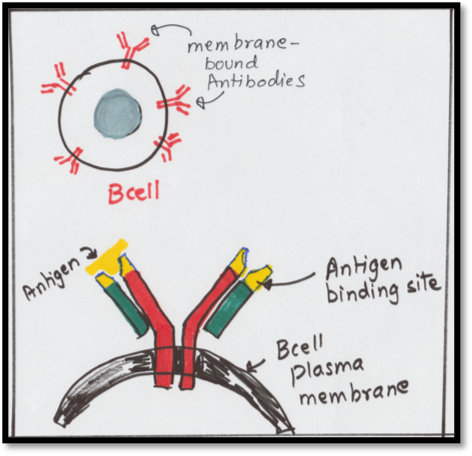 membrane-
bound
Antibodies
Bcell
Antigen
Antigen
binding site
Bcell
plasma
membrane